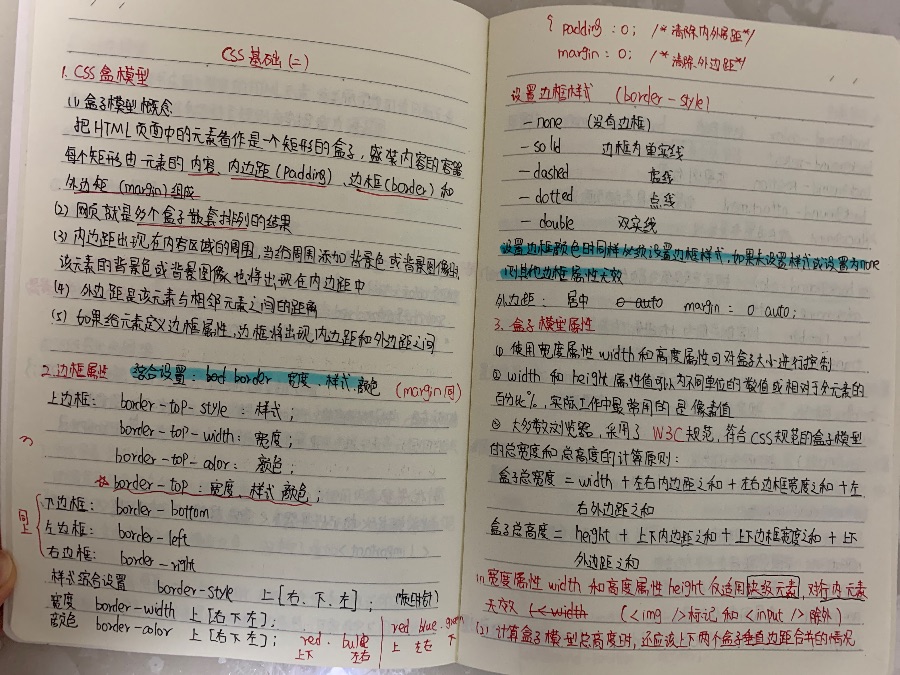 CSS基础(二)
1. CSS盒模型
(1) 盒子模型概念
把HTML页面中的元素看作是一个矩形的盒子，盛装内容的容器
每个矩形由元素的内容、内边距(padding)、边框(border)和
外边距(margin)组成
(2) 网页就是多个盒子嵌套排列的结果
(3) 内边距出现在内容区域的周围，当给周围添加背景色或背景图像时，
该元素的背景色或背景图像也将出现在内边距中
(4) 外边距是该元素与相邻元素之间的距离
(5) 如果给元素定义边框属性，边框将出现内边距和外边距之间
2.边框属性 综合设置：bod border 宽度、样式、颜色 (margin同)
上边框： border-top-style：样式；
border-top-width：宽度；
border-top-color：颜色；
☆border-top：宽度、样式 颜色；
同上
下边框： border-bottom
左边框： border-left
右边框： border-right
样式综合设置 border-style 上[右、下、左]； (顺时针)
宽度 border-width 上[右下左]；
颜色 border-color 上[右下左]；
red bulle
上下 左右
red blue green
上 左右 下
{ padding：0； /*清除内外居距*/
margin：0； /*清除外边距*/
设置边框样式 (border-style)
—none (没有边框)
—solid 边框为单实线
—dashed 虚线
—dotted 点线
—double 双实线
设置边框颜色的同样必须设置边框样式，如果未设置样式或设置为none
则其他边框属性无效
外边距： 居中 0 auto margin：0 auto；
3. 盒子模型属性
① 使用宽度属性width和高度属性可对盒子大小进行控制
② width和height属性值可以为不同单位的数值或相对于父元素的
百分比%，实际工作中最常用的是像素值
③ 大多数浏览器，采用了W3C规范，符合CSS规范的盒子模型
的总宽度和总高度的计算原则：
盒子总宽度 = width + 左右内边距之和 + 左右边框宽度之和 + 左
右外边距之和
盒子总高度 = height + 上下内边距之和 + 上下边框宽度之和 + 上下
外边距之和
(1) 宽度属性width和高度属性height仅适用块级元素，对行内元素
无效 (<width (<img />标记和<input />除外)
(2) 计算盒子模型总高度时，还应该上下两个盒子垂直边距合并的情况